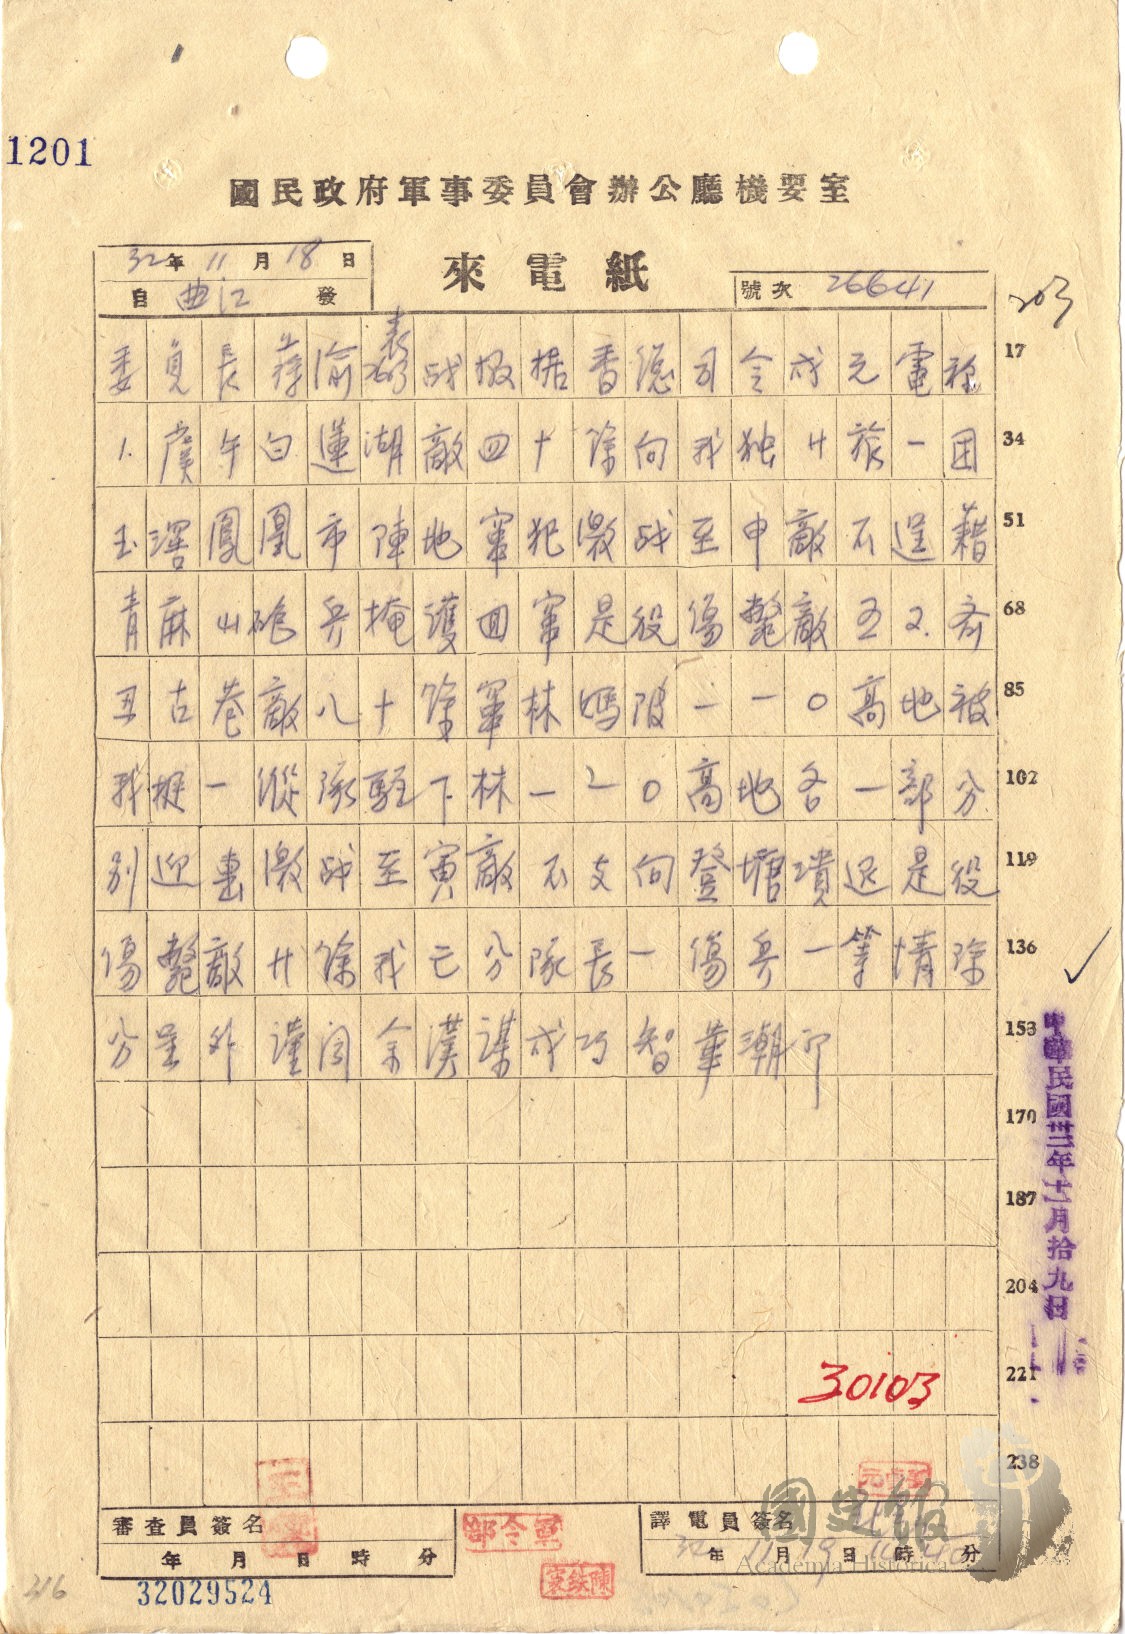 1201
國民政府軍事委員會辦公廳機要室
來電紙
32年11月18日
自曲江發
號次 26641
203
委員長蔣渝表战报据香德司令戌元電称 17
1.庚午白蓮湖敵四十餘向我独廿旅一团 34
玉滘鳳凰市陣地竄犯激战至申敵不逞藉 51
青麻山砲兵掩護回竄是役傷斃敵五2.齐 68
丑古巷敵八十餘竄林媽陂一一0高地被 85
我挺一縱隊駐下林一二0高地各一部分 102
別迎击激战至寅敵不支向登塘潰退是役 119
傷斃敵廿餘我亡分隊長一傷兵一等情除 136
分呈外謹闻余漢謀戌巧智華潮印 153
170
187
204
221
238
中華民國卅二年十一月拾九日
30103
審查員簽名
年 月 日 時 分
軍令部
陳鉄寰
譯電員簽名
32年11月19日 時 分
32029524
216
國史館
Academia Historica